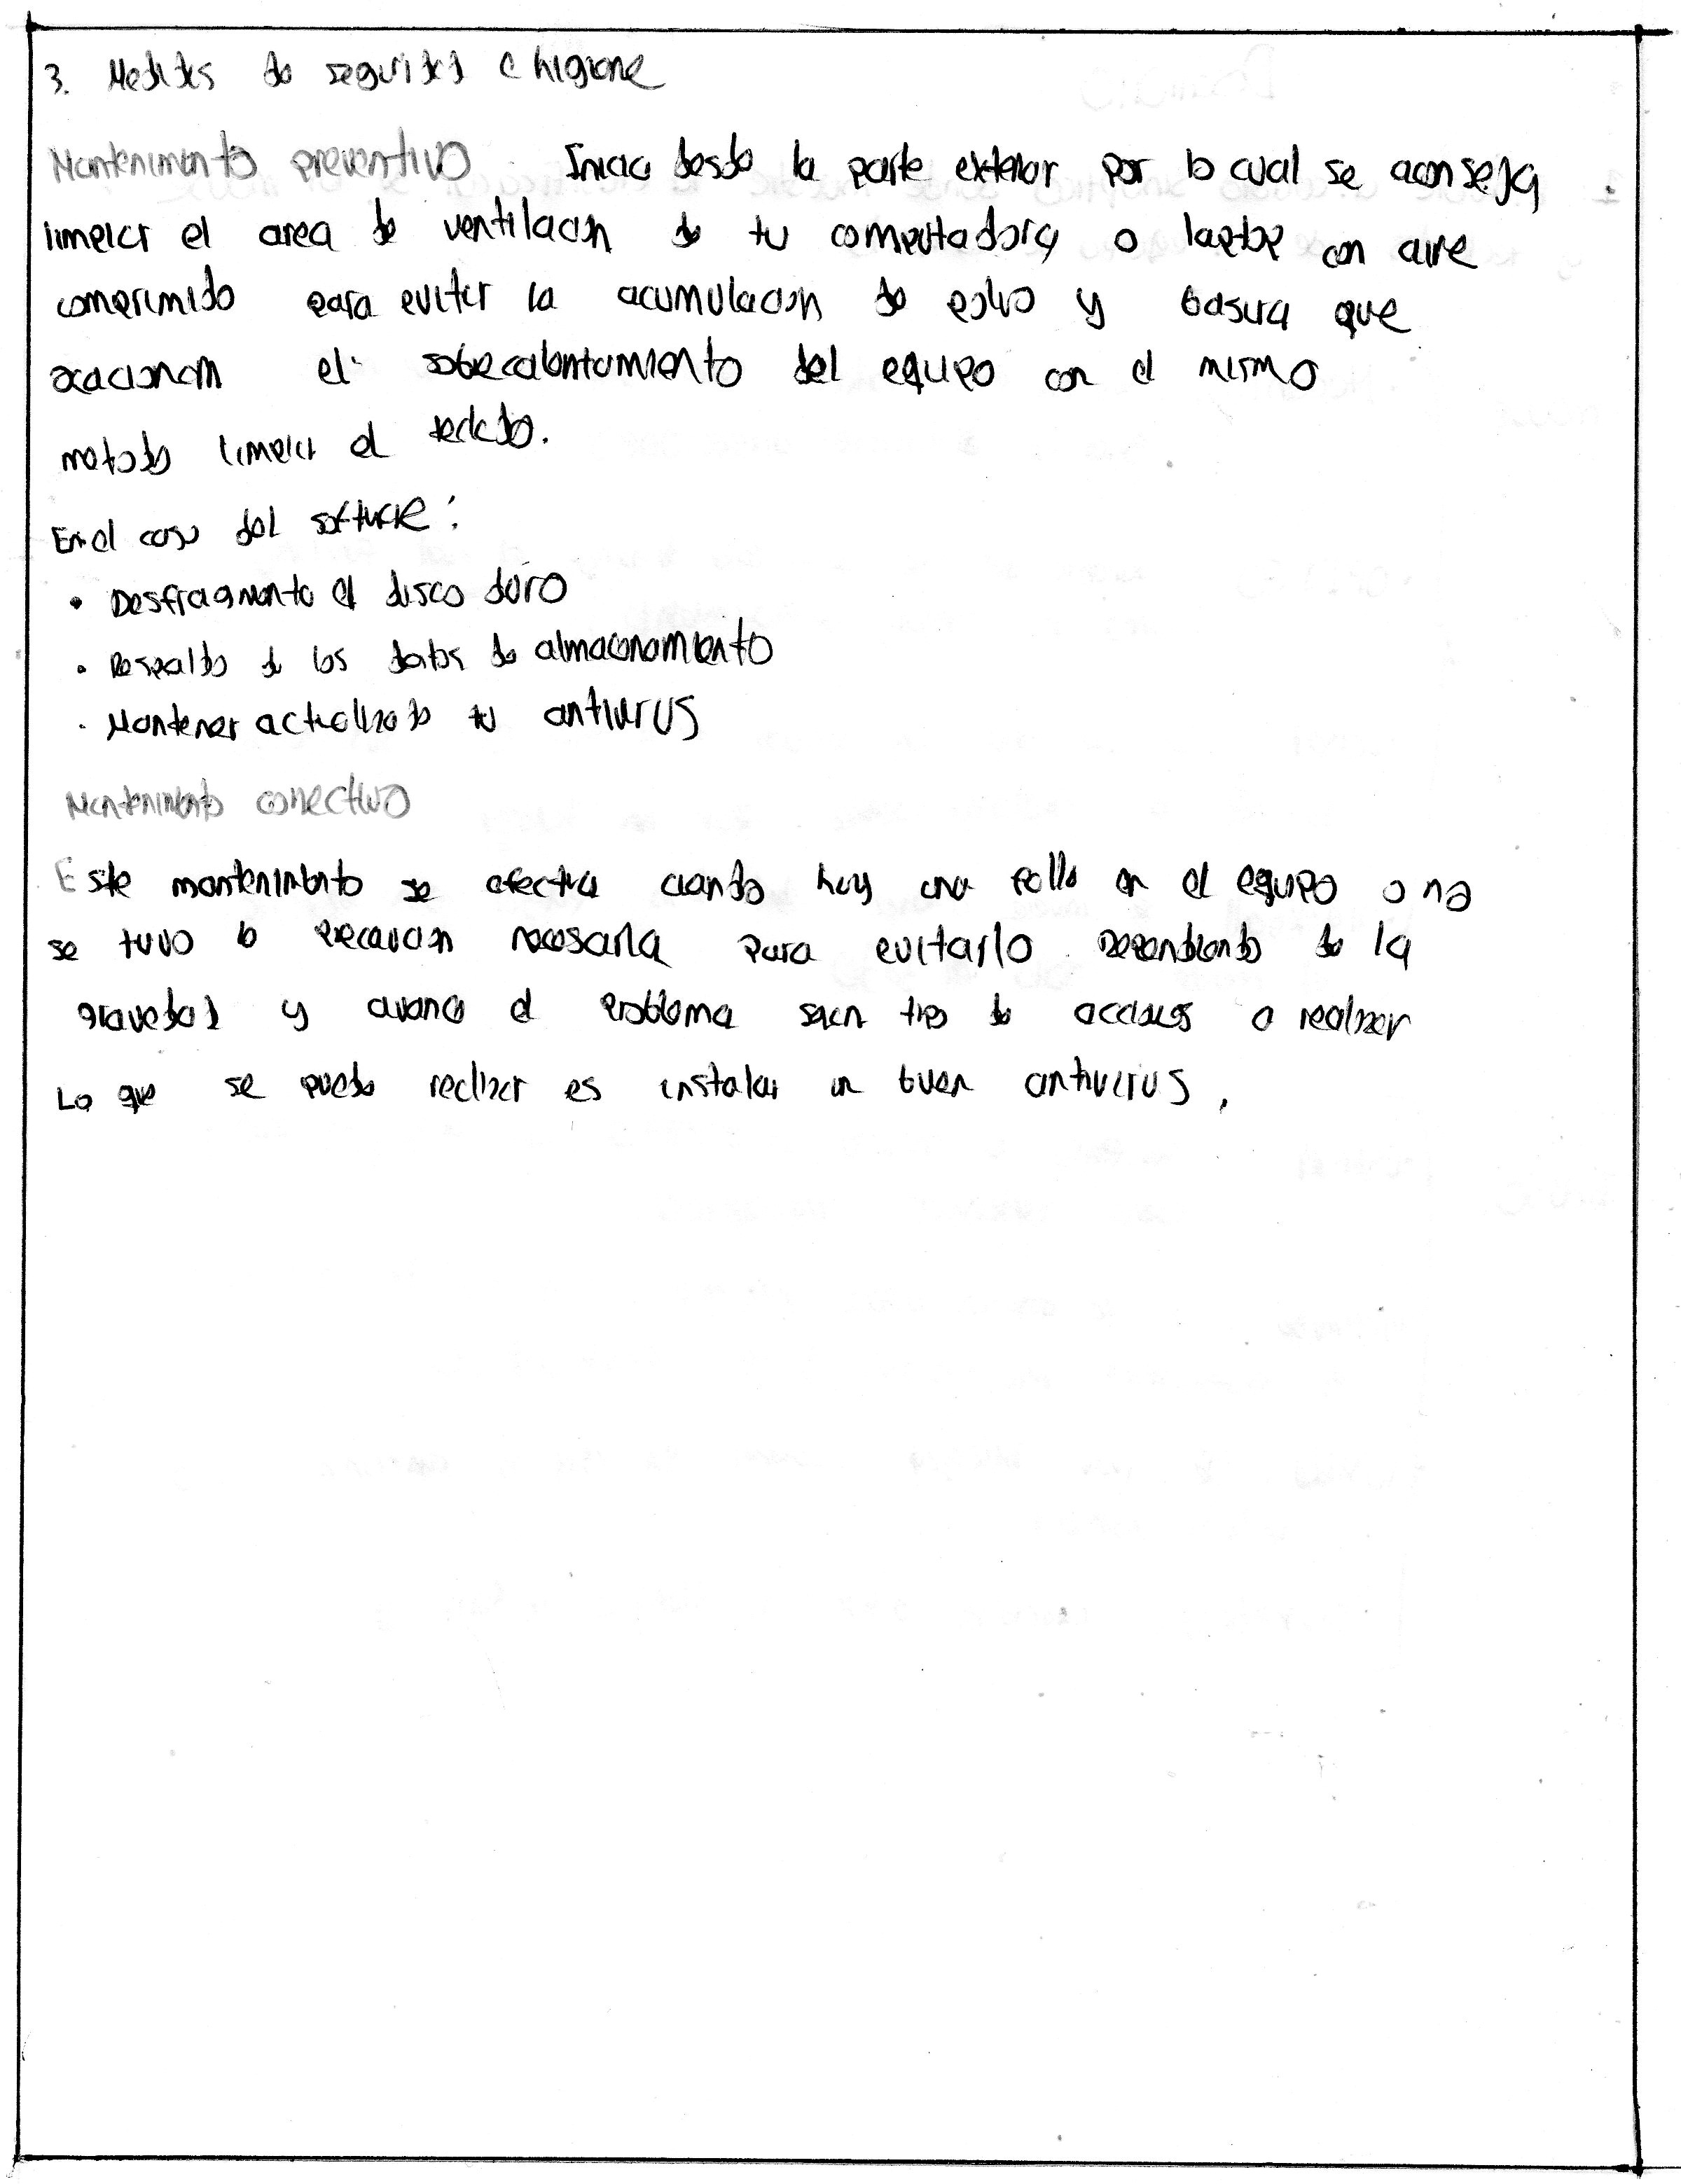 3. Medidas de seguridad e higiene
Mantenimiento preventivo. Inicia desde la parte exterior por lo cual se aconseja
limpiar el area de ventilacion de tu computadora o laptop con aire
comprimido para evitar la acumulacion de polvo y basura que
ocacionan el sobrecalentamiento del equipo con el mismo
metodo limpiar el teclado.
En el caso del software:
• Desfragmenta el disco duro
• Respaldo de los datos de almacenamiento
• Mantener actualizado tu antivirus
Mantenimiento correctivo
Este mantenimiento se efectua cuando hay una falla en el equipo o no
se tuvo la precaucion necesaria para evitarlo. Dependiendo de la
gravedad y avance el problema seran tipo de acciones a realizar
Lo que se puede realizar es instalar un buen antivirus.